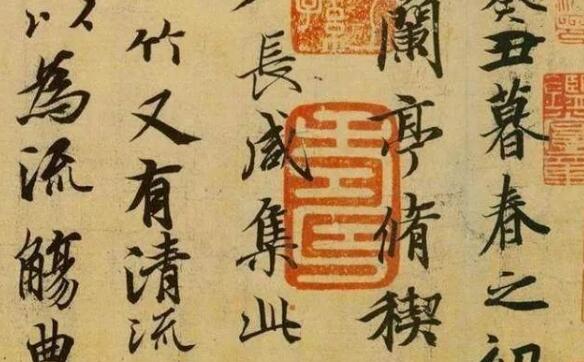 癸丑暮春之初
蘭亭脩稧
長咸集此
竹又有清流
以為流觴曲